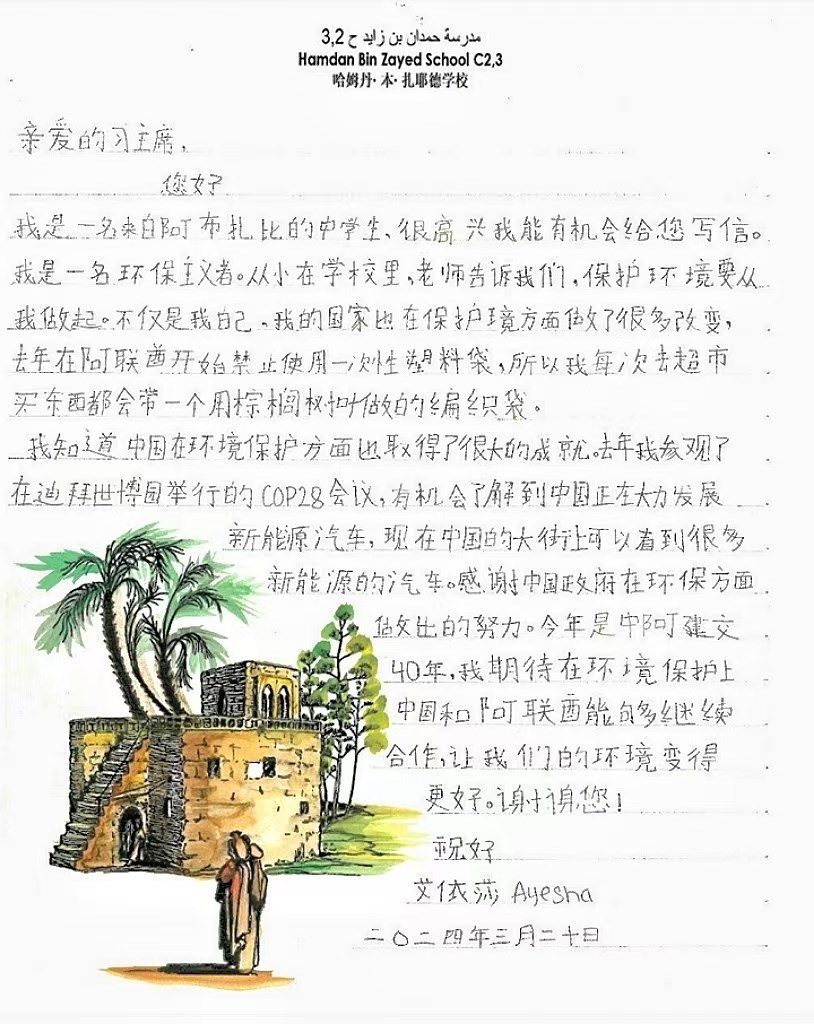 مدرسة حمدان بن زايد ح 3,2
Hamdan Bin Zayed School C2,3
哈姆丹·本·扎耶德学校
亲爱的习主席，
您好
我是一名来自阿布扎比的中学生、很高兴我能有机会给您写信。
我是一名环保主义者。从小在学校里，老师告诉我们，保护环境要从
我做起。不仅是我自己，我的国家也在保护境方面做了很多改变，
去年在阿联酋开始禁止使用一次性塑料袋，所以我每次去超市
买东西都会带一个用棕榈树叶做的编织袋。
我知道中国在环境保护方面也取得了很大的成就。去年我参观了
在迪拜世博园举行的COP28会议，有机会了解到中国正在大力发展
新能源汽车，现在中国的大街让可以看到很多
新能源的汽车。感谢中国政府在环保方面
做出的努力。今年是中阿建交
40年，我期待在环境保护上
中国和阿联酋能够多继续
合作，让我们的环境变得
更好。谢谢您！
祝好
艾依莎 Ayesha
二〇二四年三月二十日